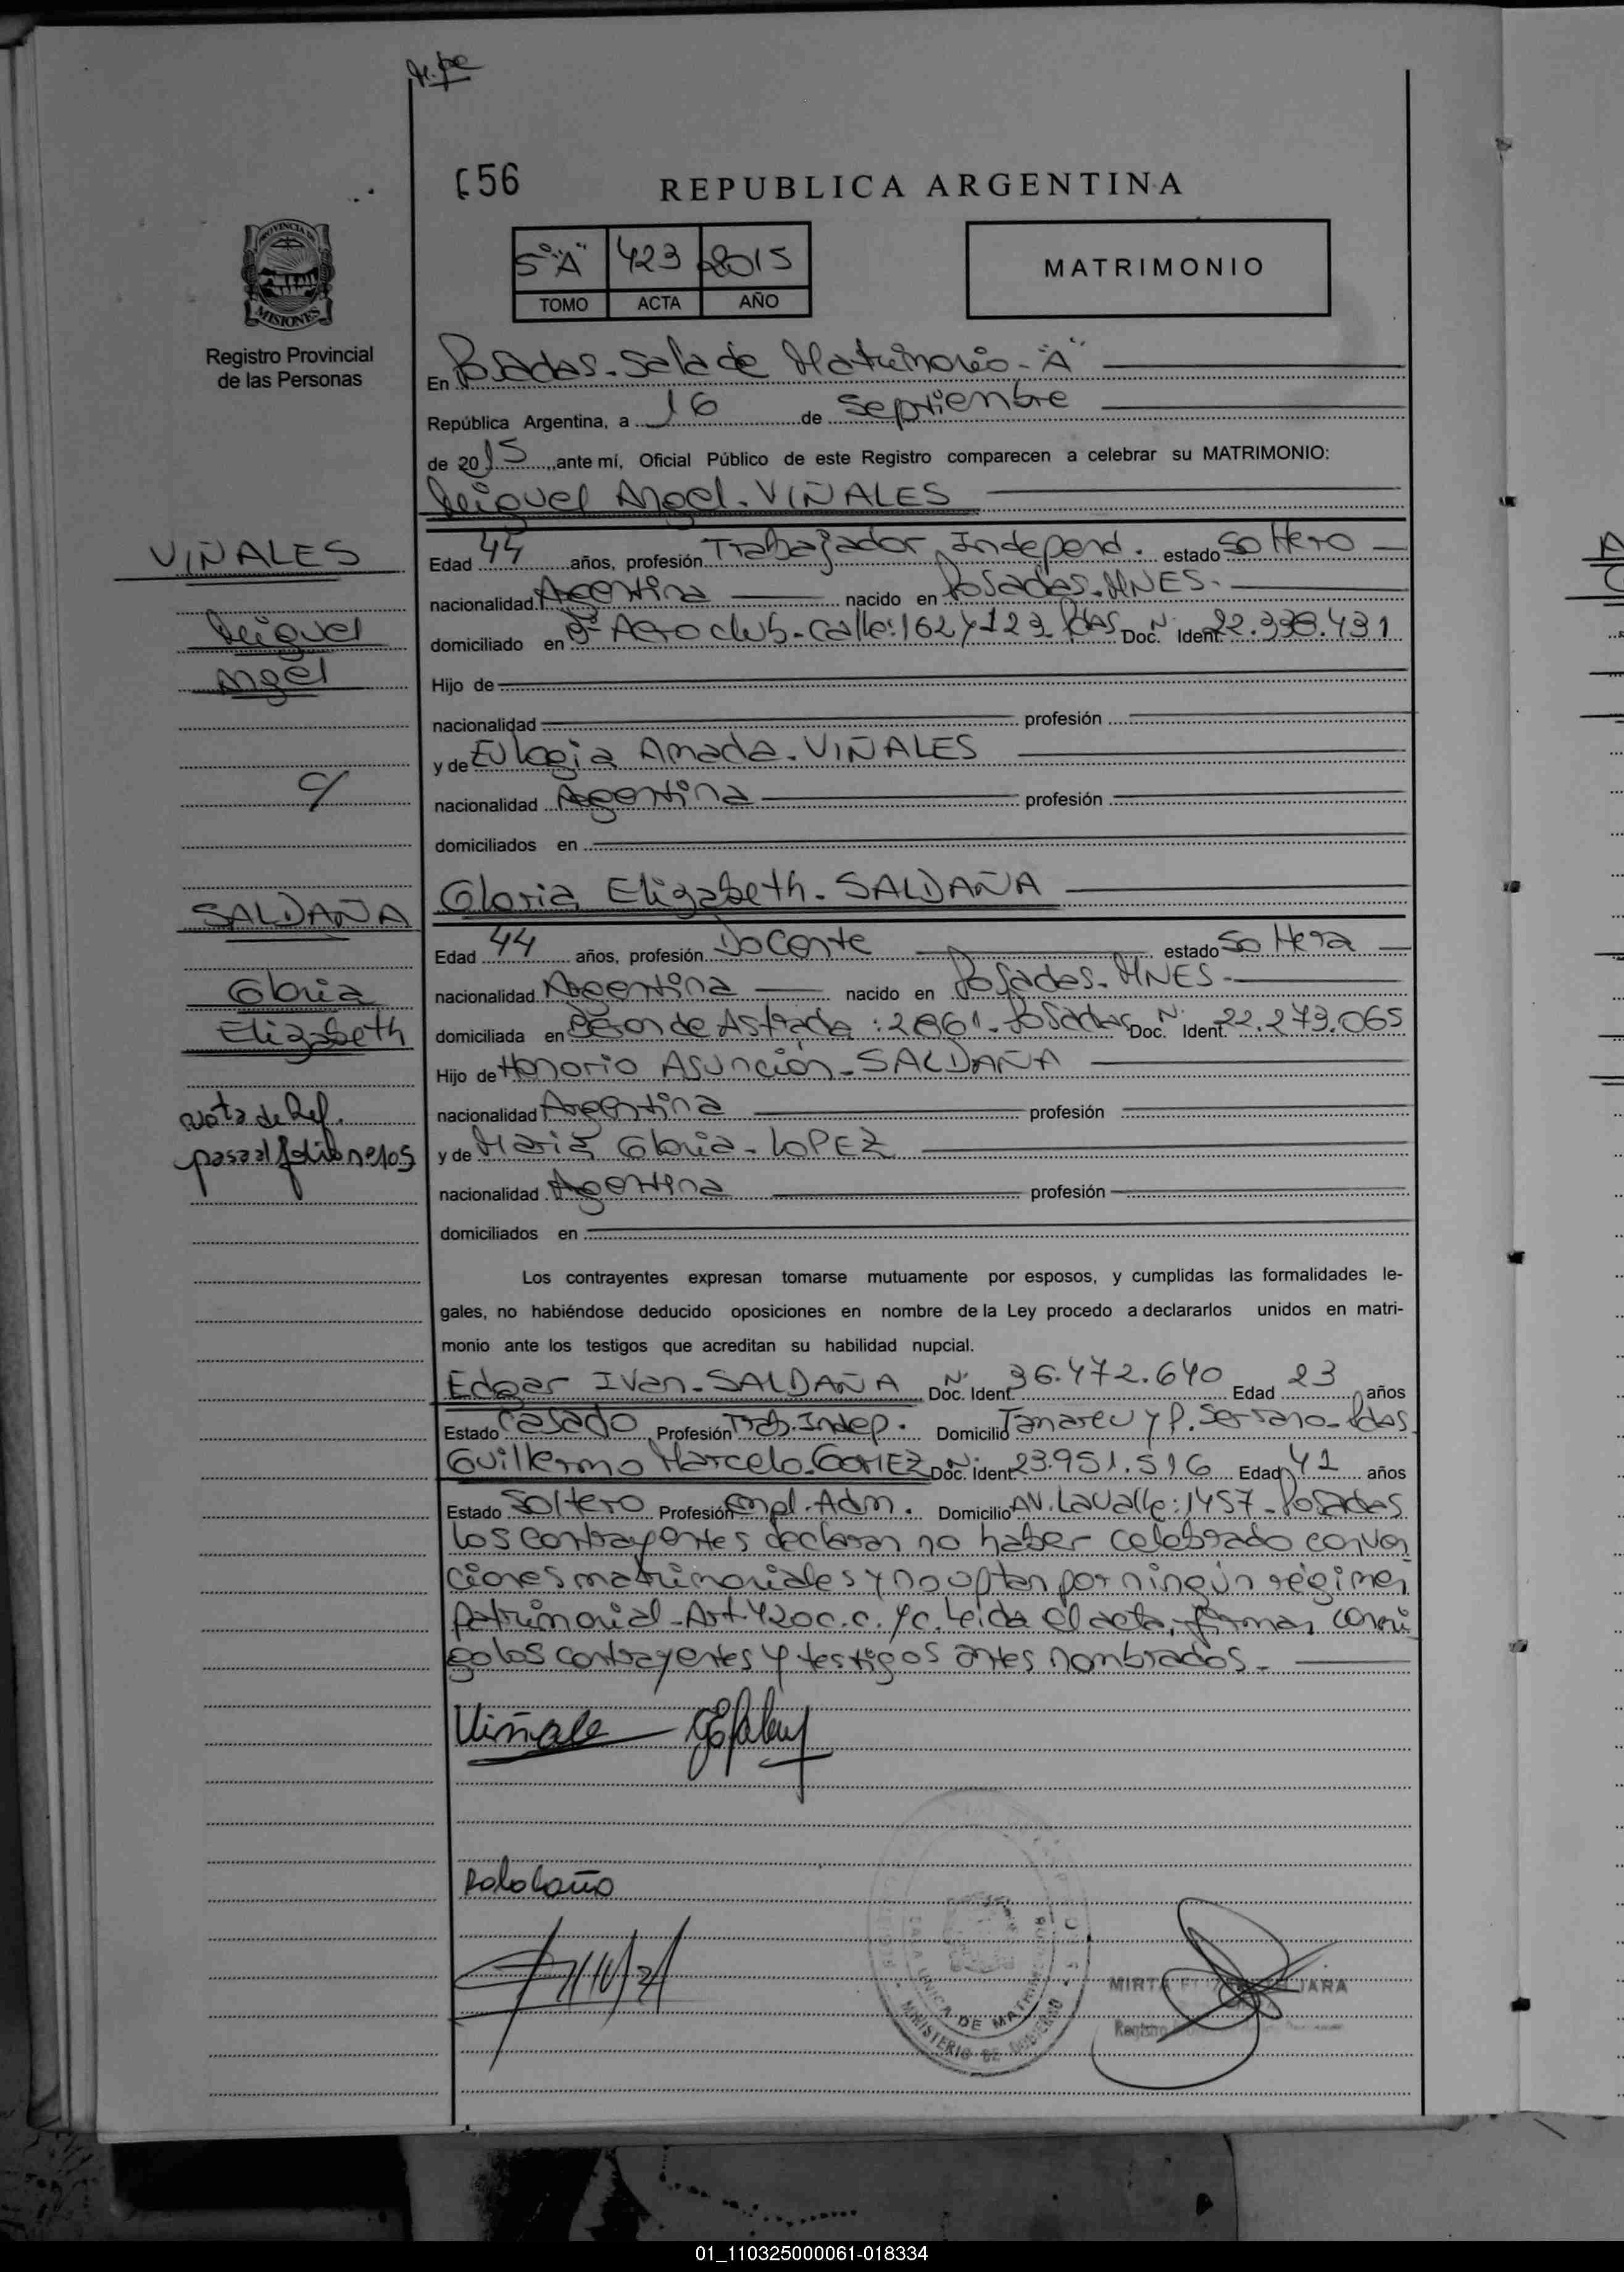 056
REPUBLICA ARGENTINA
5º"A" 423 2015
TOMO ACTA AÑO
MATRIMONIO
PROVINCIA DE
MISIONES
Registro Provincial
de las Personas
En Posadas - Sala de Matrimonio - "A"
República Argentina, a 16 de Septiembre
de 2015, ante mí, Oficial Público de este Registro comparecen a celebrar su MATRIMONIO:
Miguel Angel - VIÑALES
VIÑALES
Miguel
Angel
c/
SALDAÑA
Gloria
Elizabeth
Nota de Ref.
pasa al folio nº105
Edad 44 años, profesión Trabajador Independ. estado Soltero
nacionalidad Argentina nacido en Posadas - MNES -
domiciliado en Bº Aeroclub - Calle: 162 y 123 - Pdas Doc. Nº Ident. 22.338.431
Hijo de
nacionalidad profesión
y de Eulogia Amada - VIÑALES
nacionalidad Argentina profesión
domiciliados en
Gloria Elizabeth - SALDAÑA
Edad 44 años, profesión Docente estado Soltera
nacionalidad Argentina nacido en Posadas - MNES -
domiciliada en Beron de Astrada : 2861 - Posadas Doc. Nº Ident. 22.273.065
Hijo de Honorio Asunción - SALDAÑA
nacionalidad Argentina profesión
y de Maria Gloria - LOPEZ
nacionalidad Argentina profesión
domiciliados en
Los contrayentes expresan tomarse mutuamente por esposos, y cumplidas las formalidades le-
gales, no habiéndose deducido oposiciones en nombre de la Ley procedo a declararlos unidos en matri-
monio ante los testigos que acreditan su habilidad nupcial.
Edgar Ivan - SALDAÑA Doc. Nº Ident. 36.472.640 Edad 23 años
Estado Casado Profesión Trab. Indep. Domicilio Tamareu y P. Serrano - Pdas
Guillermo Marcelo - GOMEZ Doc. Nº ident 23.951.516 Edad 41 años
Estado Soltero Profesión Empl. Adm. Domicilio AV. Lavalle: 1457 - Posadas
Los contrayentes declaran no haber celebrado conven
ciones matrimoniales y no optan por ningún régimen
patrimonial - Art. 420 c.c. y c. Leida el acta, firman conmi
go los contrayentes y testigos antes nombrados. -
Viñale
SALA UNICA DE MATRIM
MINISTERIO DE GOBIERNO
MIRTA JARA
Registro
01_110325000061-018334